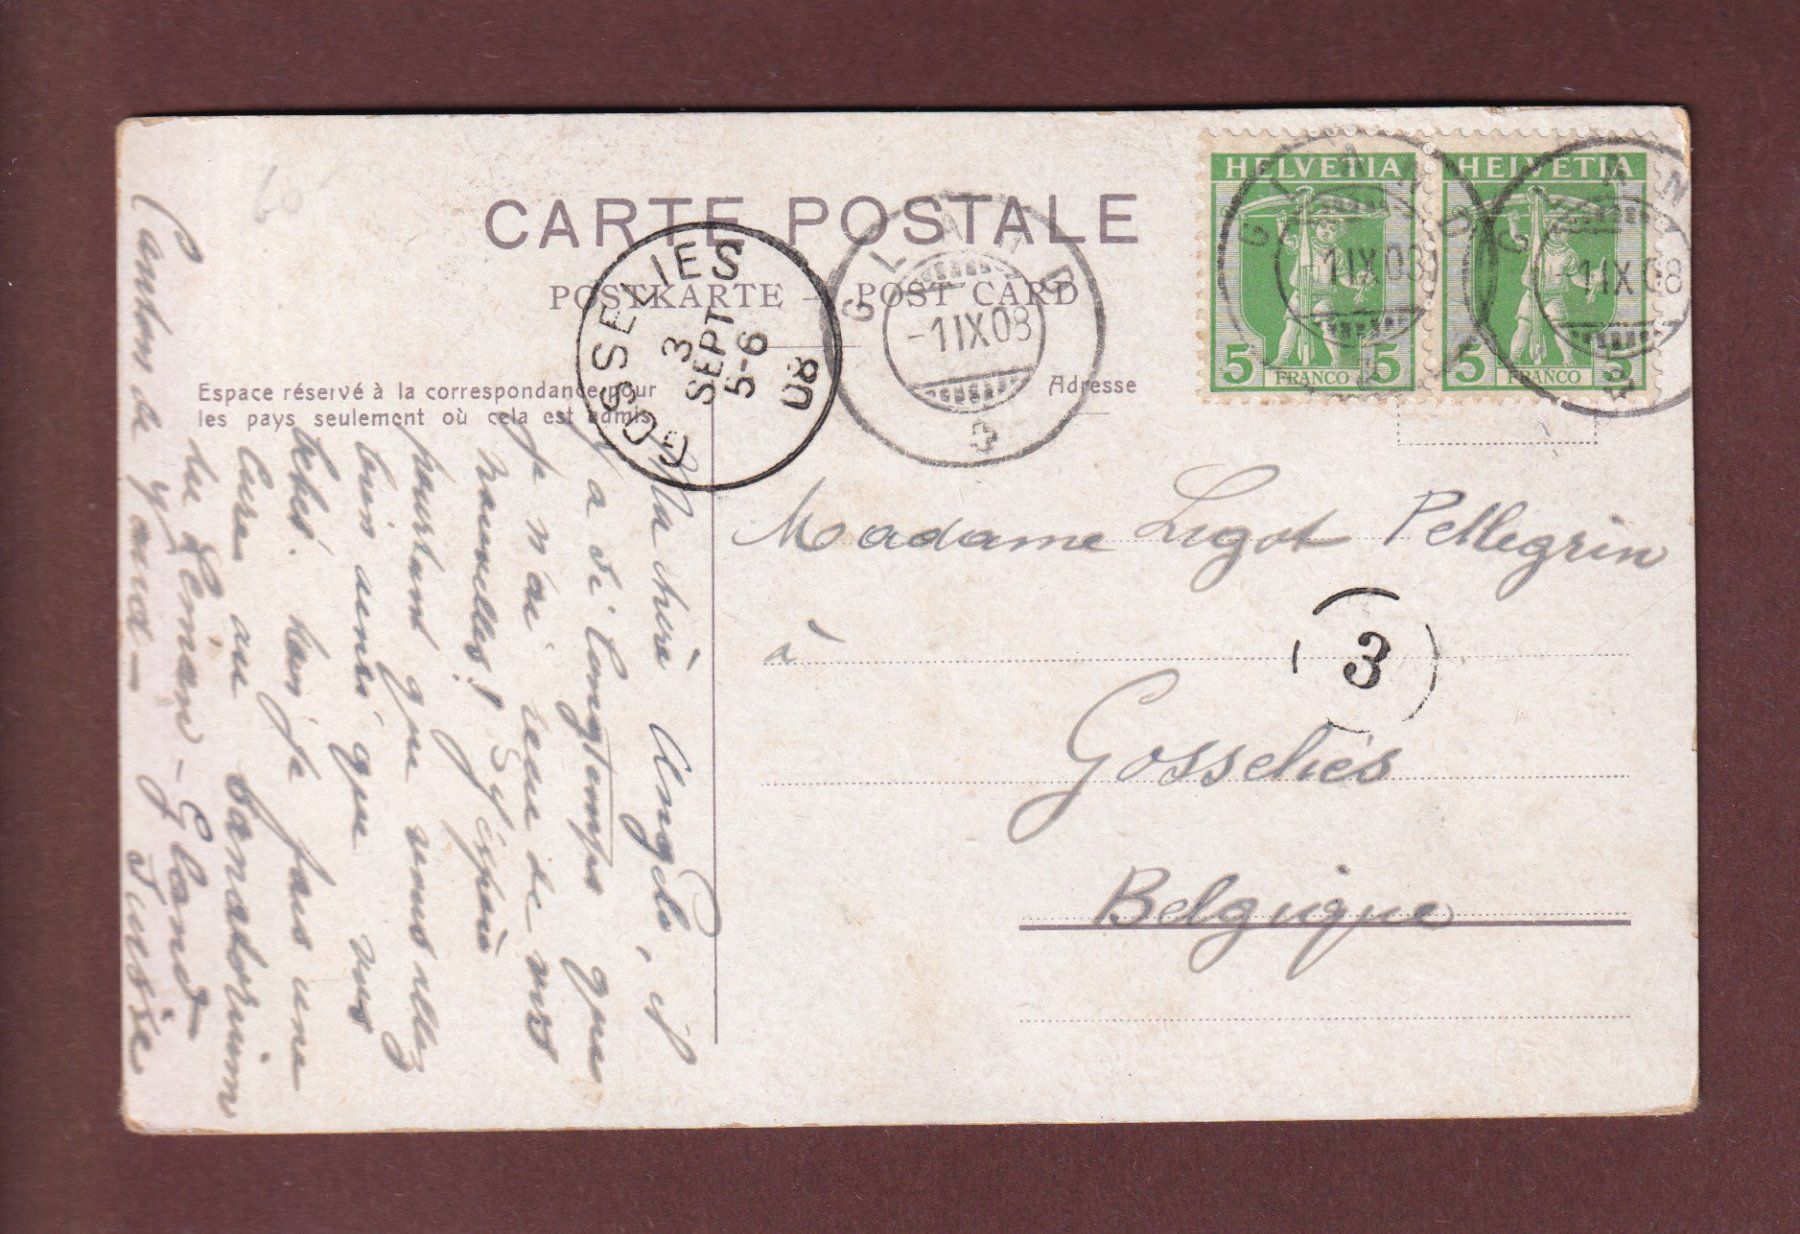 CARTE POSTALE
POSTKARTE – POST CARD
Espace réservé à la correspondance pour
les pays seulement où cela est admis
Adresse
HELVETIA
5 FRANCO 5
HELVETIA
5 FRANCO 5
GLAND
1 IX 08
GLAND
-1 IX 08
GLAND
-1 IX 08
GOSSELIES
3
SEPT
5-6
08
3
Madame Ligot Pellegrin
à
Gosselies
Belgique
Ma chère Angèle, il
y a si longtemps que
je n'ai reçu de vos
nouvelles! J'espère
pourtant que vous allez
bien ainsi que vos
bébés. Moi je fais une
cure au Sanatorium
du Léman – Gland
Canton de Vaud – Suisse